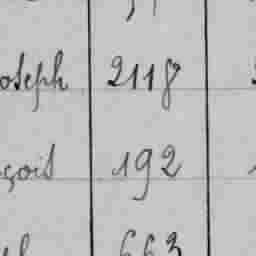 oseph 2118
çois 192
el 663